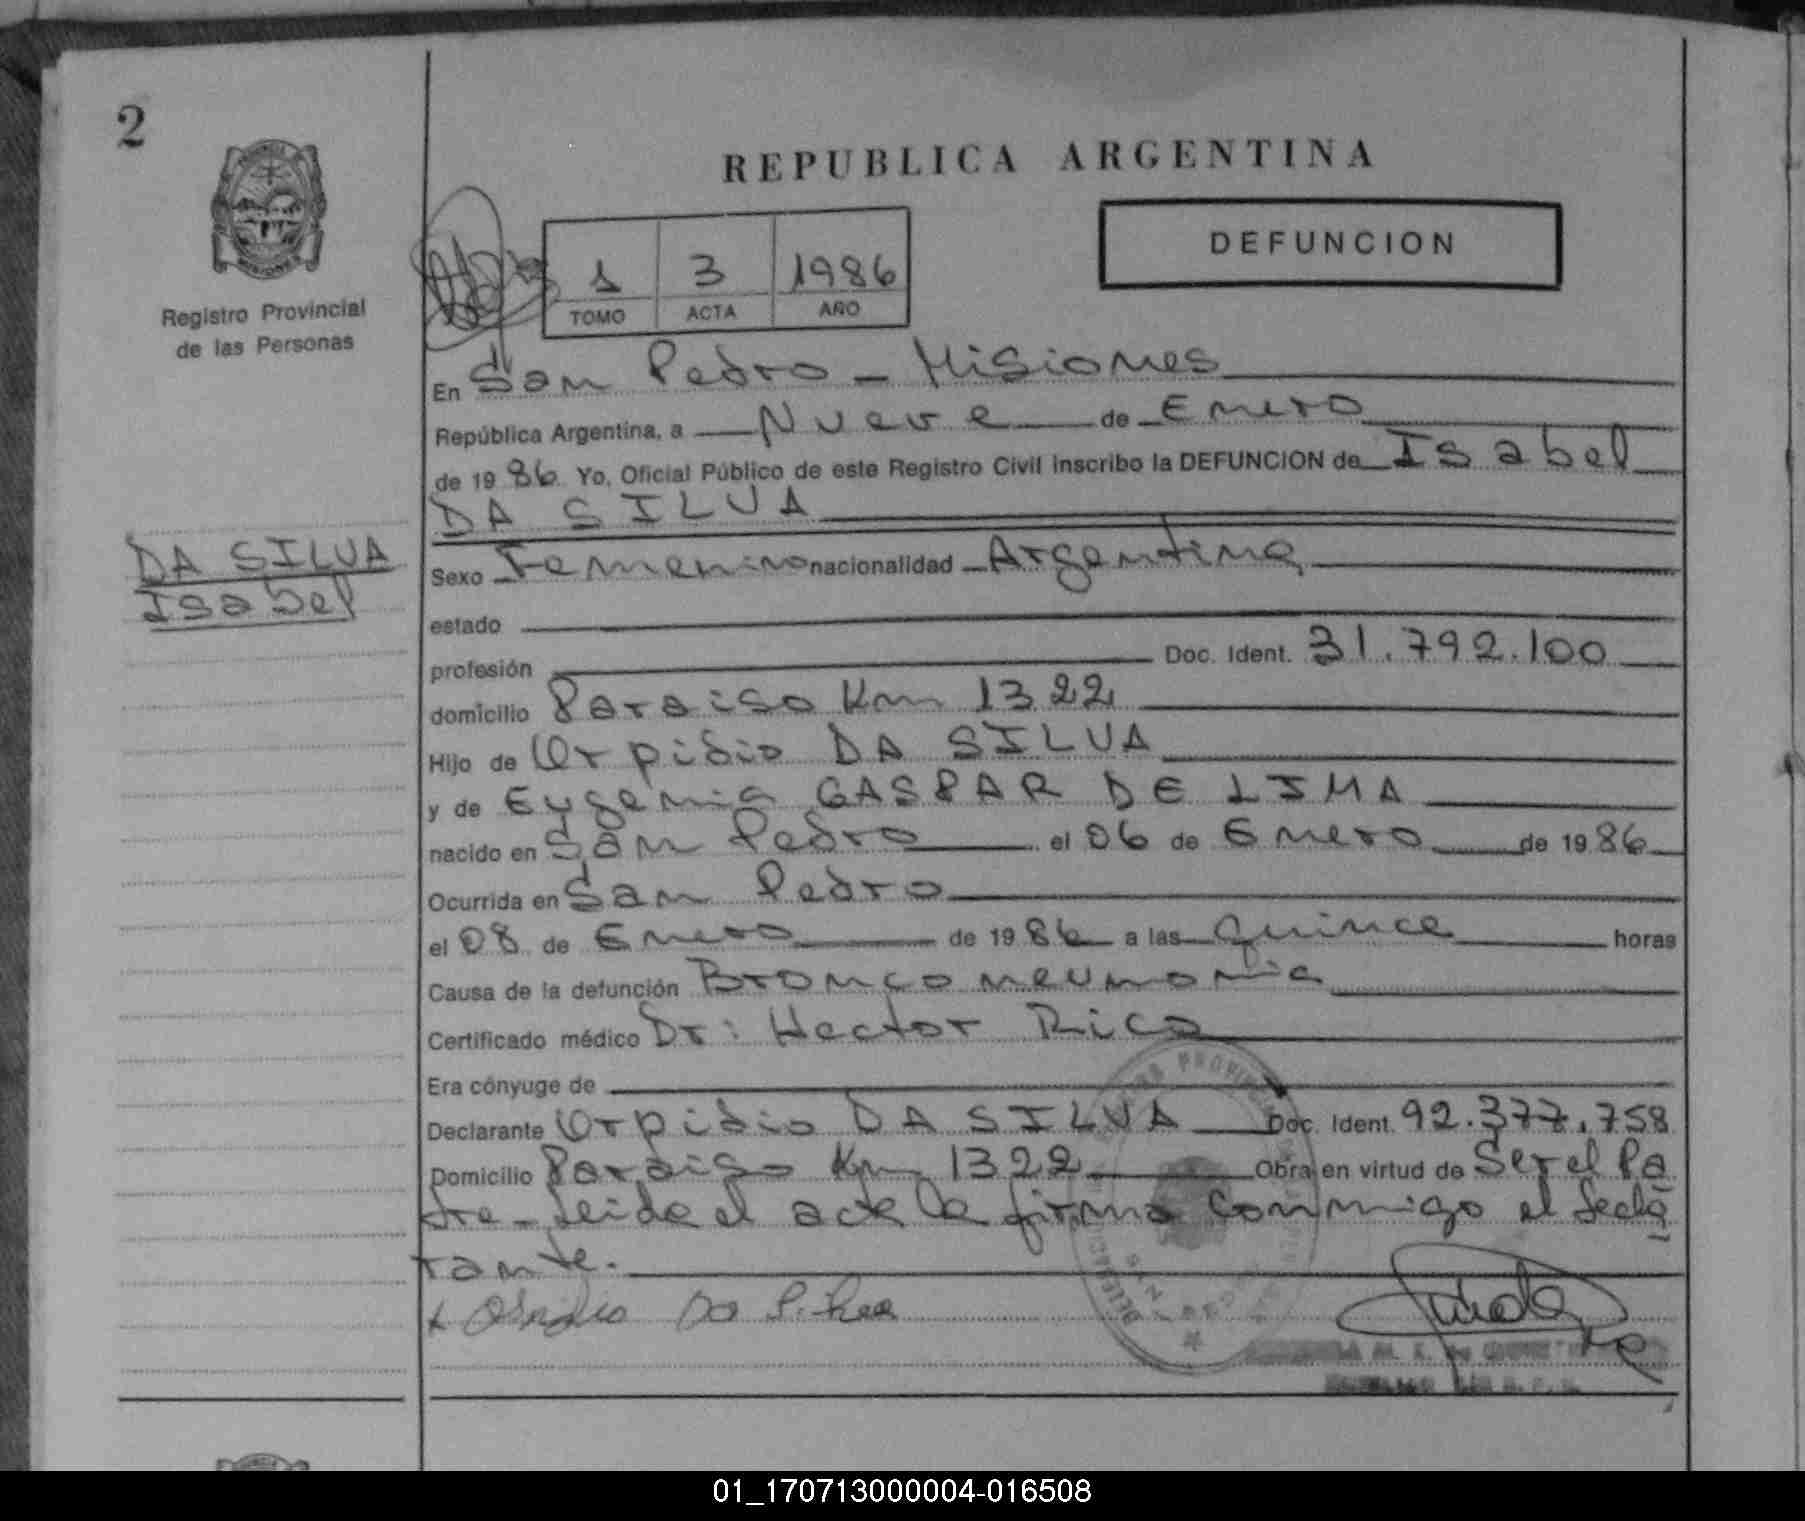 2
REPUBLICA ARGENTINA
DEFUNCION
Registro Provincial
de las Personas
1 3 1986
TOMO ACTA AÑO
En San Pedro - Misiones
República Argentina, a Nueve de Enero
de 1986 Yo, Oficial Público de este Registro Civil inscribo la DEFUNCION de Isabel
DA SILVA
DA SILVA
Isabel
Sexo Femenino nacionalidad Argentina
estado
profesión Doc. Ident. 31.792.100
domicilio Paraiso Km 1322
Hijo de Orpidio DA SILVA
y de Eugenia GASPAR DE LIMA
nacido en San Pedro el 06 de Enero de 1986
Ocurrida en San Pedro
el 08 de Enero de 1986 a las quince horas
Causa de la defunción Bronconeumonia
Certificado médico Dr: Hector Rico
Era cónyuge de
Declarante Orpidio DA SILVA Doc. Ident. 92.377.758
Domicilio Paraiso Km 1322 Obra en virtud de Ser el Pa
dre - Leida el acta la firma conmigo el decla
rante.
Da Silva
01_170713000004-016508